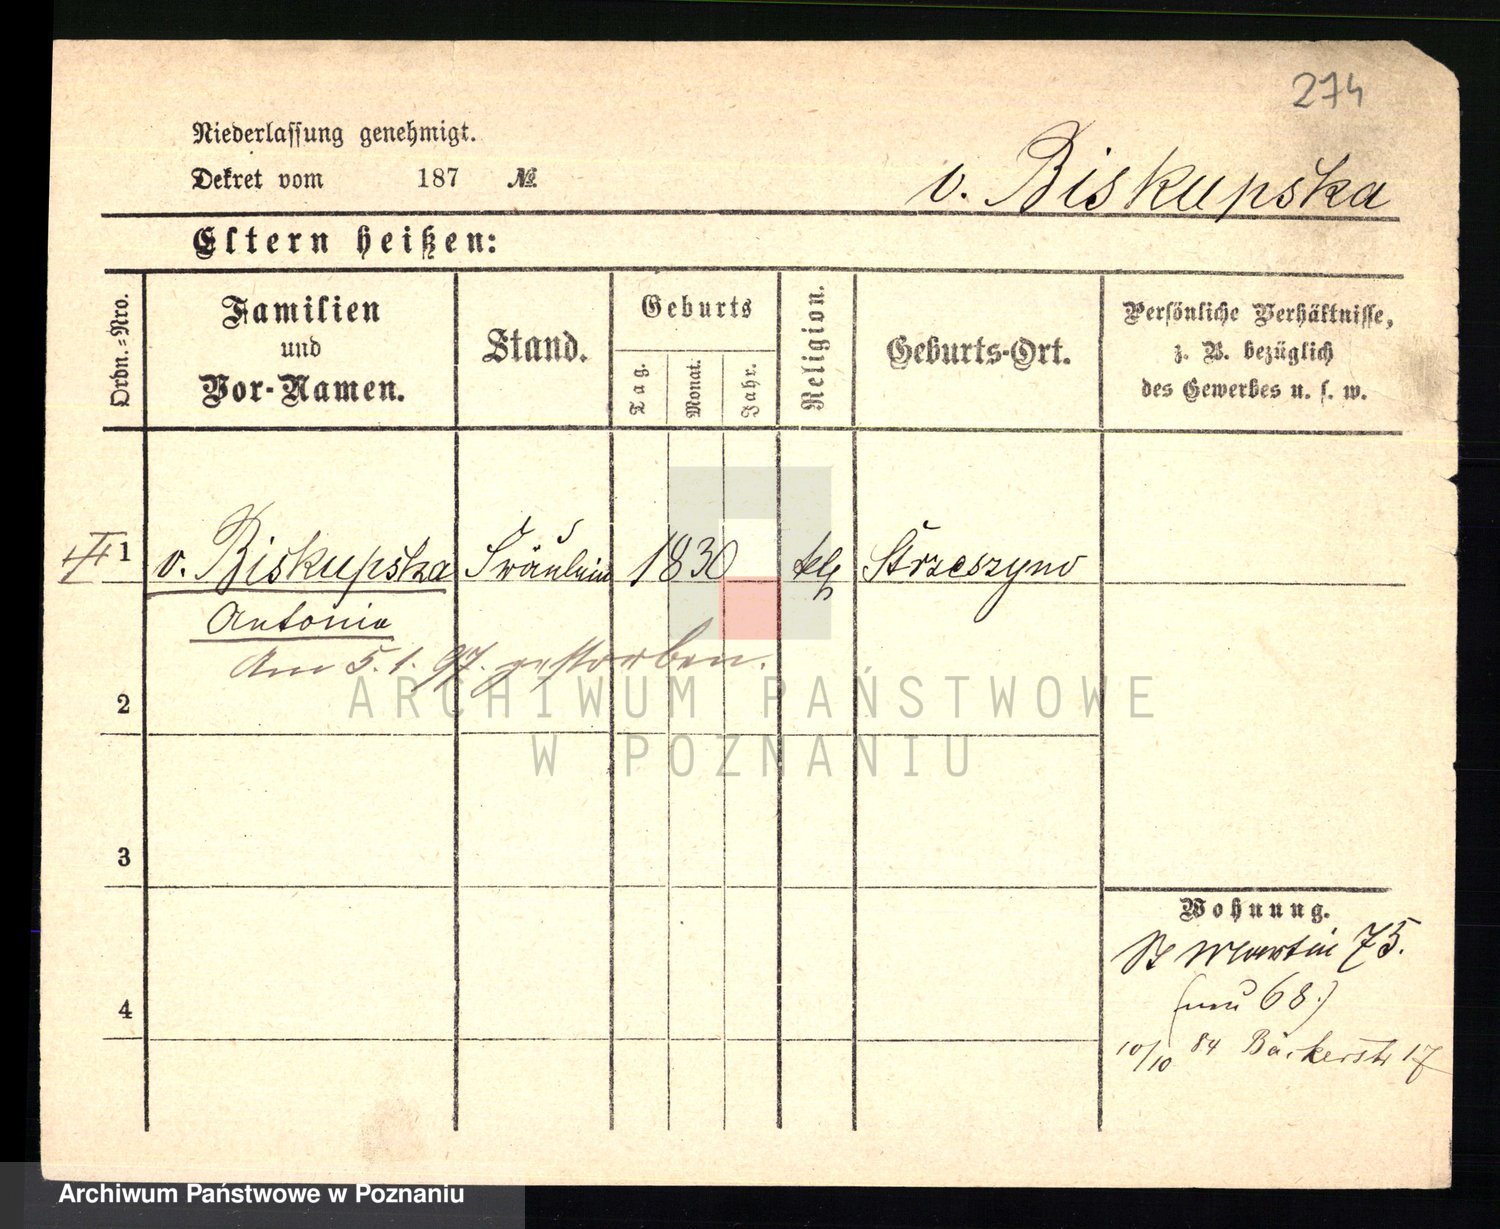 274
Niederlassung genehmigt.
Dekret vom 187 №
v. Biskupska
Eltern heißen:
Ordn.-Nro.
Familien
und
Vor-Namen.
Stand.
Geburts
Tag.
Monat.
Jahr.
Religion.
Geburts-Ort.
Persönliche Verhältnisse,
z. B. bezüglich
des Gewerbes u. s. w.
1 v. Biskupska Fräulein 1830 kth Strzeszyno
Antonia
Am 5.1.97. gestorben.
2
3
4
Wohnung.
St Martin 75.
(neu 68.)
10/10 84 Bäckerstr 17
ARCHIWUM PAŃSTWOWE
W POZNANIU
Archiwum Państwowe w Poznaniu